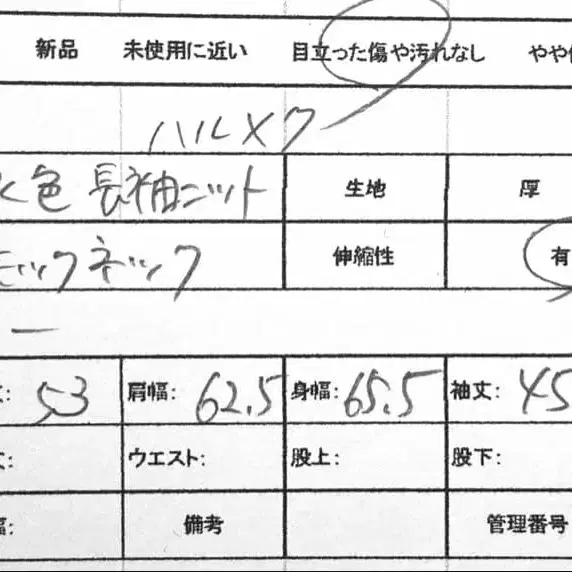 新品 未使用に近い 目立った傷や汚れなし やや
ハルメク
水色 長袖ニット 生地 厚
モックネック 伸縮性 有
ー
丈: 53 肩幅: 62.5 身幅: 65.5 袖丈: 45
丈: ウエスト: 股上: 股下:
幅: 備考 管理番号